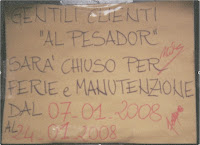 GENTILI CLIENTI
"AL PESADOR"
SARA' CHIUSO PER
FERIE e MANUTENZIONE
DAL 07.01.2008
AL 24.01.2008